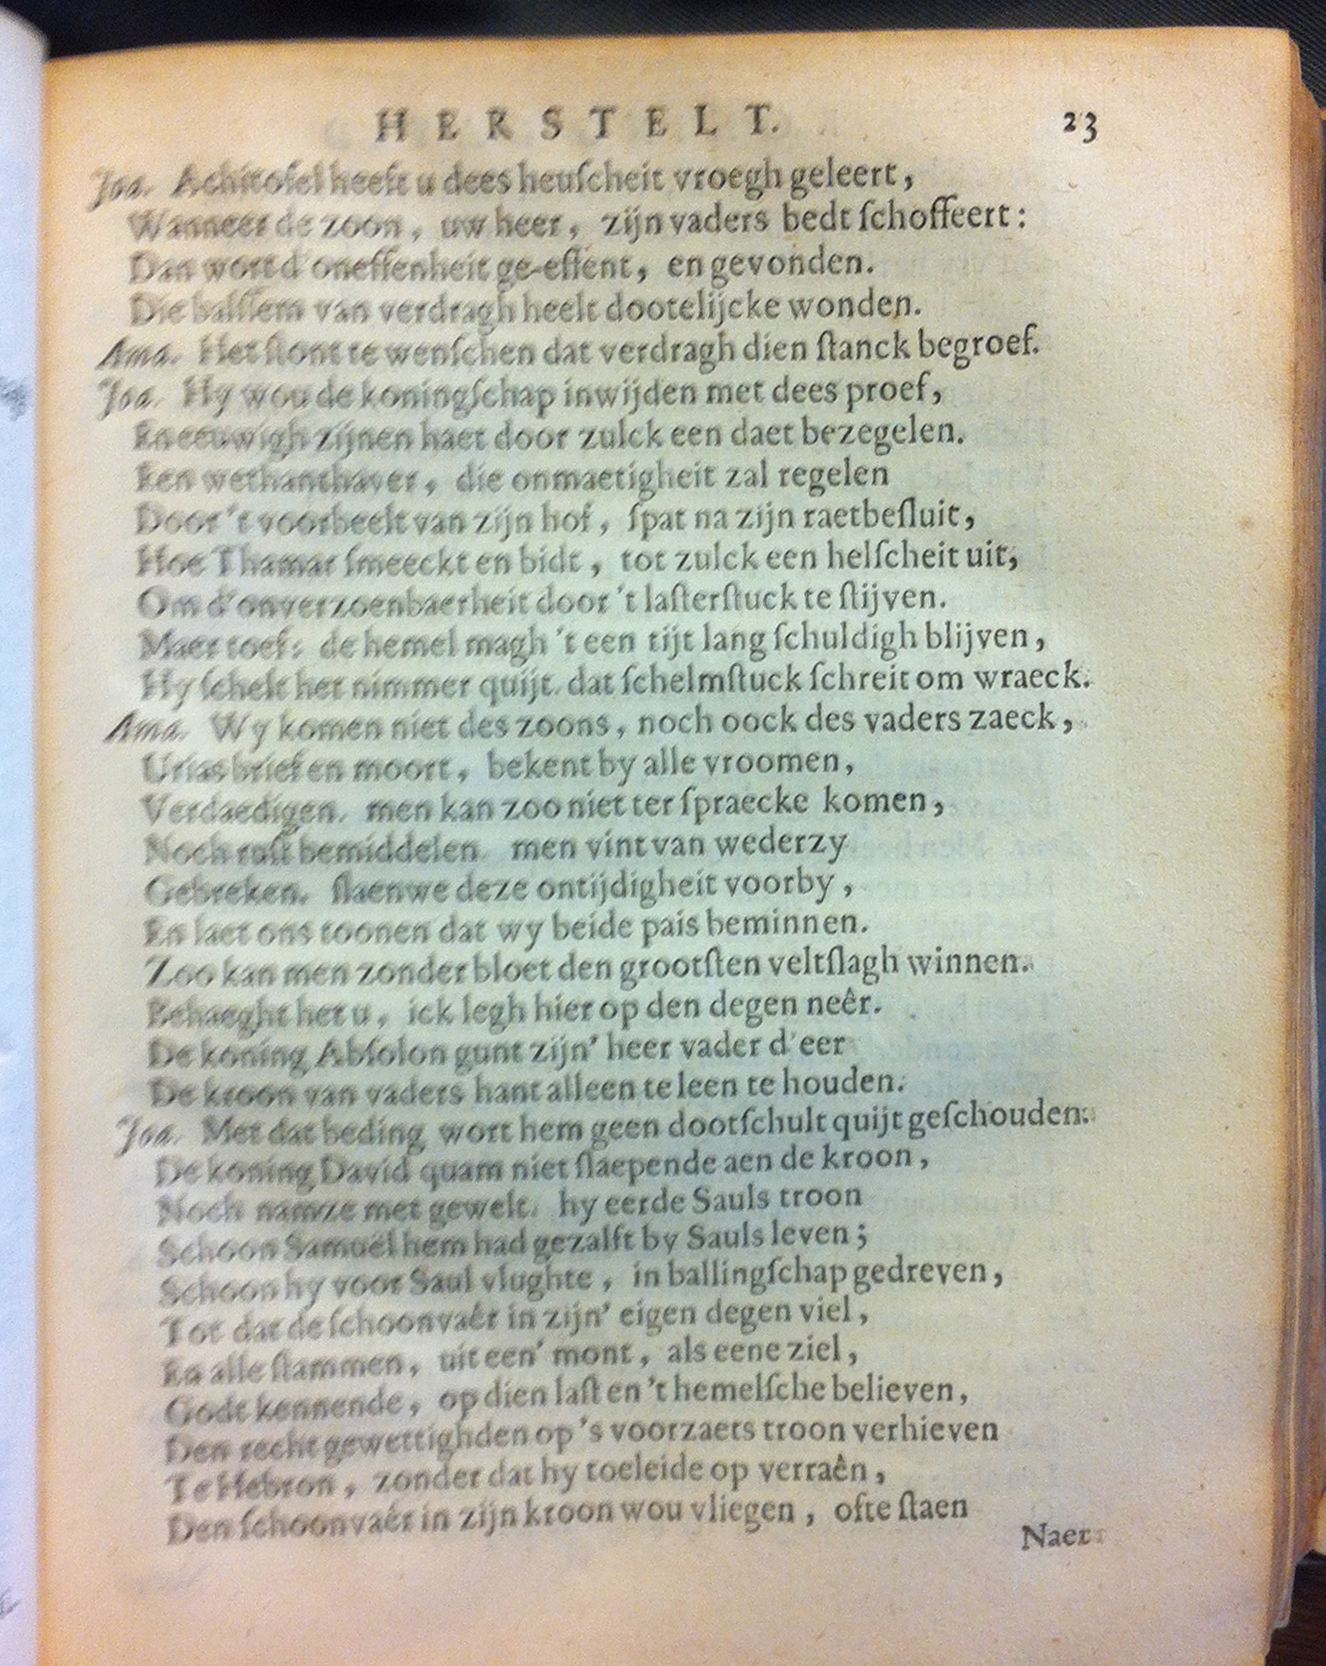 HERSTELT. 23
Joa. Achitofel heeft u dees heuſcheit vroegh geleert,
Wanneer de zoon, uw heer, zijn vaders bedt ſchoffeert:
Dan wort d'oneffenheit ge-effent, en gevonden.
Die balſſem van verdragh heelt dootelijcke wonden.
Ama. Het ſtont te wenſchen dat verdragh dien ſtanck begroef.
Joa. Hy wou de koningſchap inwijden met dees proef,
En eeuwigh zijnen haet door zulck een daet bezegelen.
Een wethanthaver, die onmaetigheit zal regelen
Door 't voorbeelt van zijn hof, ſpat na zijn raetbeſluit,
Hoe Thamar ſmeeckt en bidt, tot zulck een helſcheit uit,
Om d'onverzoenbaerheit door 't laſterſtuck te ſtijven.
Maer toef: de hemel magh 't een tijt lang ſchuldigh blijven,
Hy ſchelt het nimmer quijt. dat ſchelmſtuck ſchreit om wraeck.
Ama. Wy komen niet des zoons, noch oock des vaders zaeck,
Urias brief en moort, bekent by alle vroomen,
Verdaedigen. men kan zoo niet ter ſpraecke komen,
Noch ruſt bemiddelen. men vint van wederzy
Gebreken. ſlaenwe deze ontijdigheit voorby,
En laet ons toonen dat wy beide pais beminnen.
Zoo kan men zonder bloet den grootſten veltſlagh winnen.
Behaeght het u, ick legh hier op den degen neêr.
De koning Abſolon gunt zijn' heer vader d'eer
De kroon van vaders hant alleen te leen te houden.
Joa. Met dat beding wort hem geen dootſchult quijt geſchouden.
De koning David quam niet ſlaepende aen de kroon,
Noch namze met gewelt. hy eerde Sauls troon
Schoon Samuël hem had gezalft by Sauls leven;
Schoon hy voor Saul vlughte, in ballingſchap gedreven,
Tot dat de ſchoonvaêr in zijn' eigen degen viel,
En alle ſtammen, uit een' mont, als eene ziel,
Godt kennende, op dien laſt en 't hemelſche believen,
Den recht gewettighden op 's voorzaets troon verhieven
Te Hebron, zonder dat hy toeleide op verraên,
Den ſchoonvaêr in zijn kroon wou vliegen, ofte ſtaen
Naer